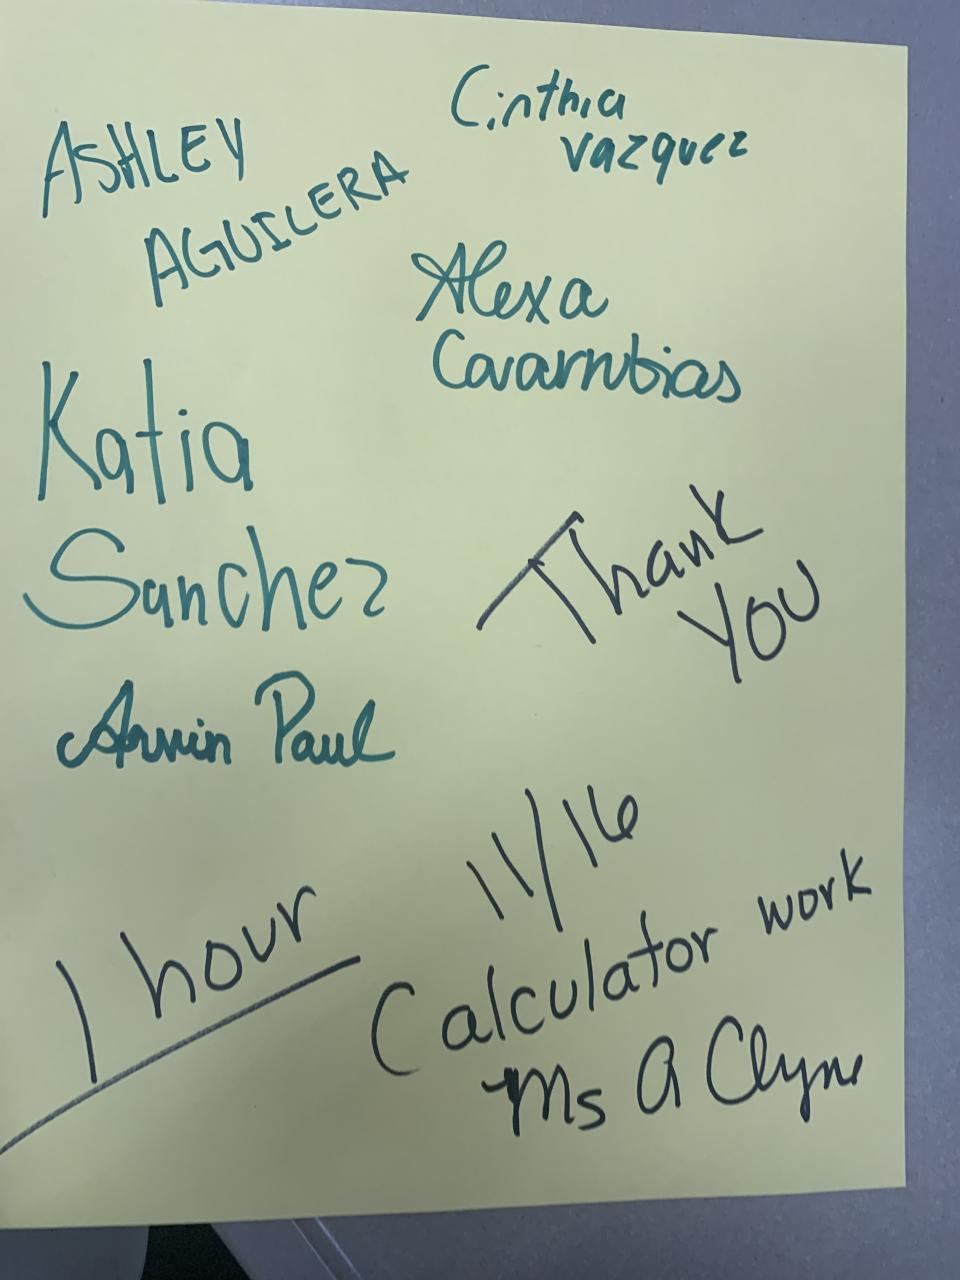 ASHLEY
AGUILERA
Cinthia
vazquez
Alexa
Covarrubias
Katia
Sanchez
Arwin Paul
Thank
YOU
1 hour
11/16
Calculator work
Ms A Clyne